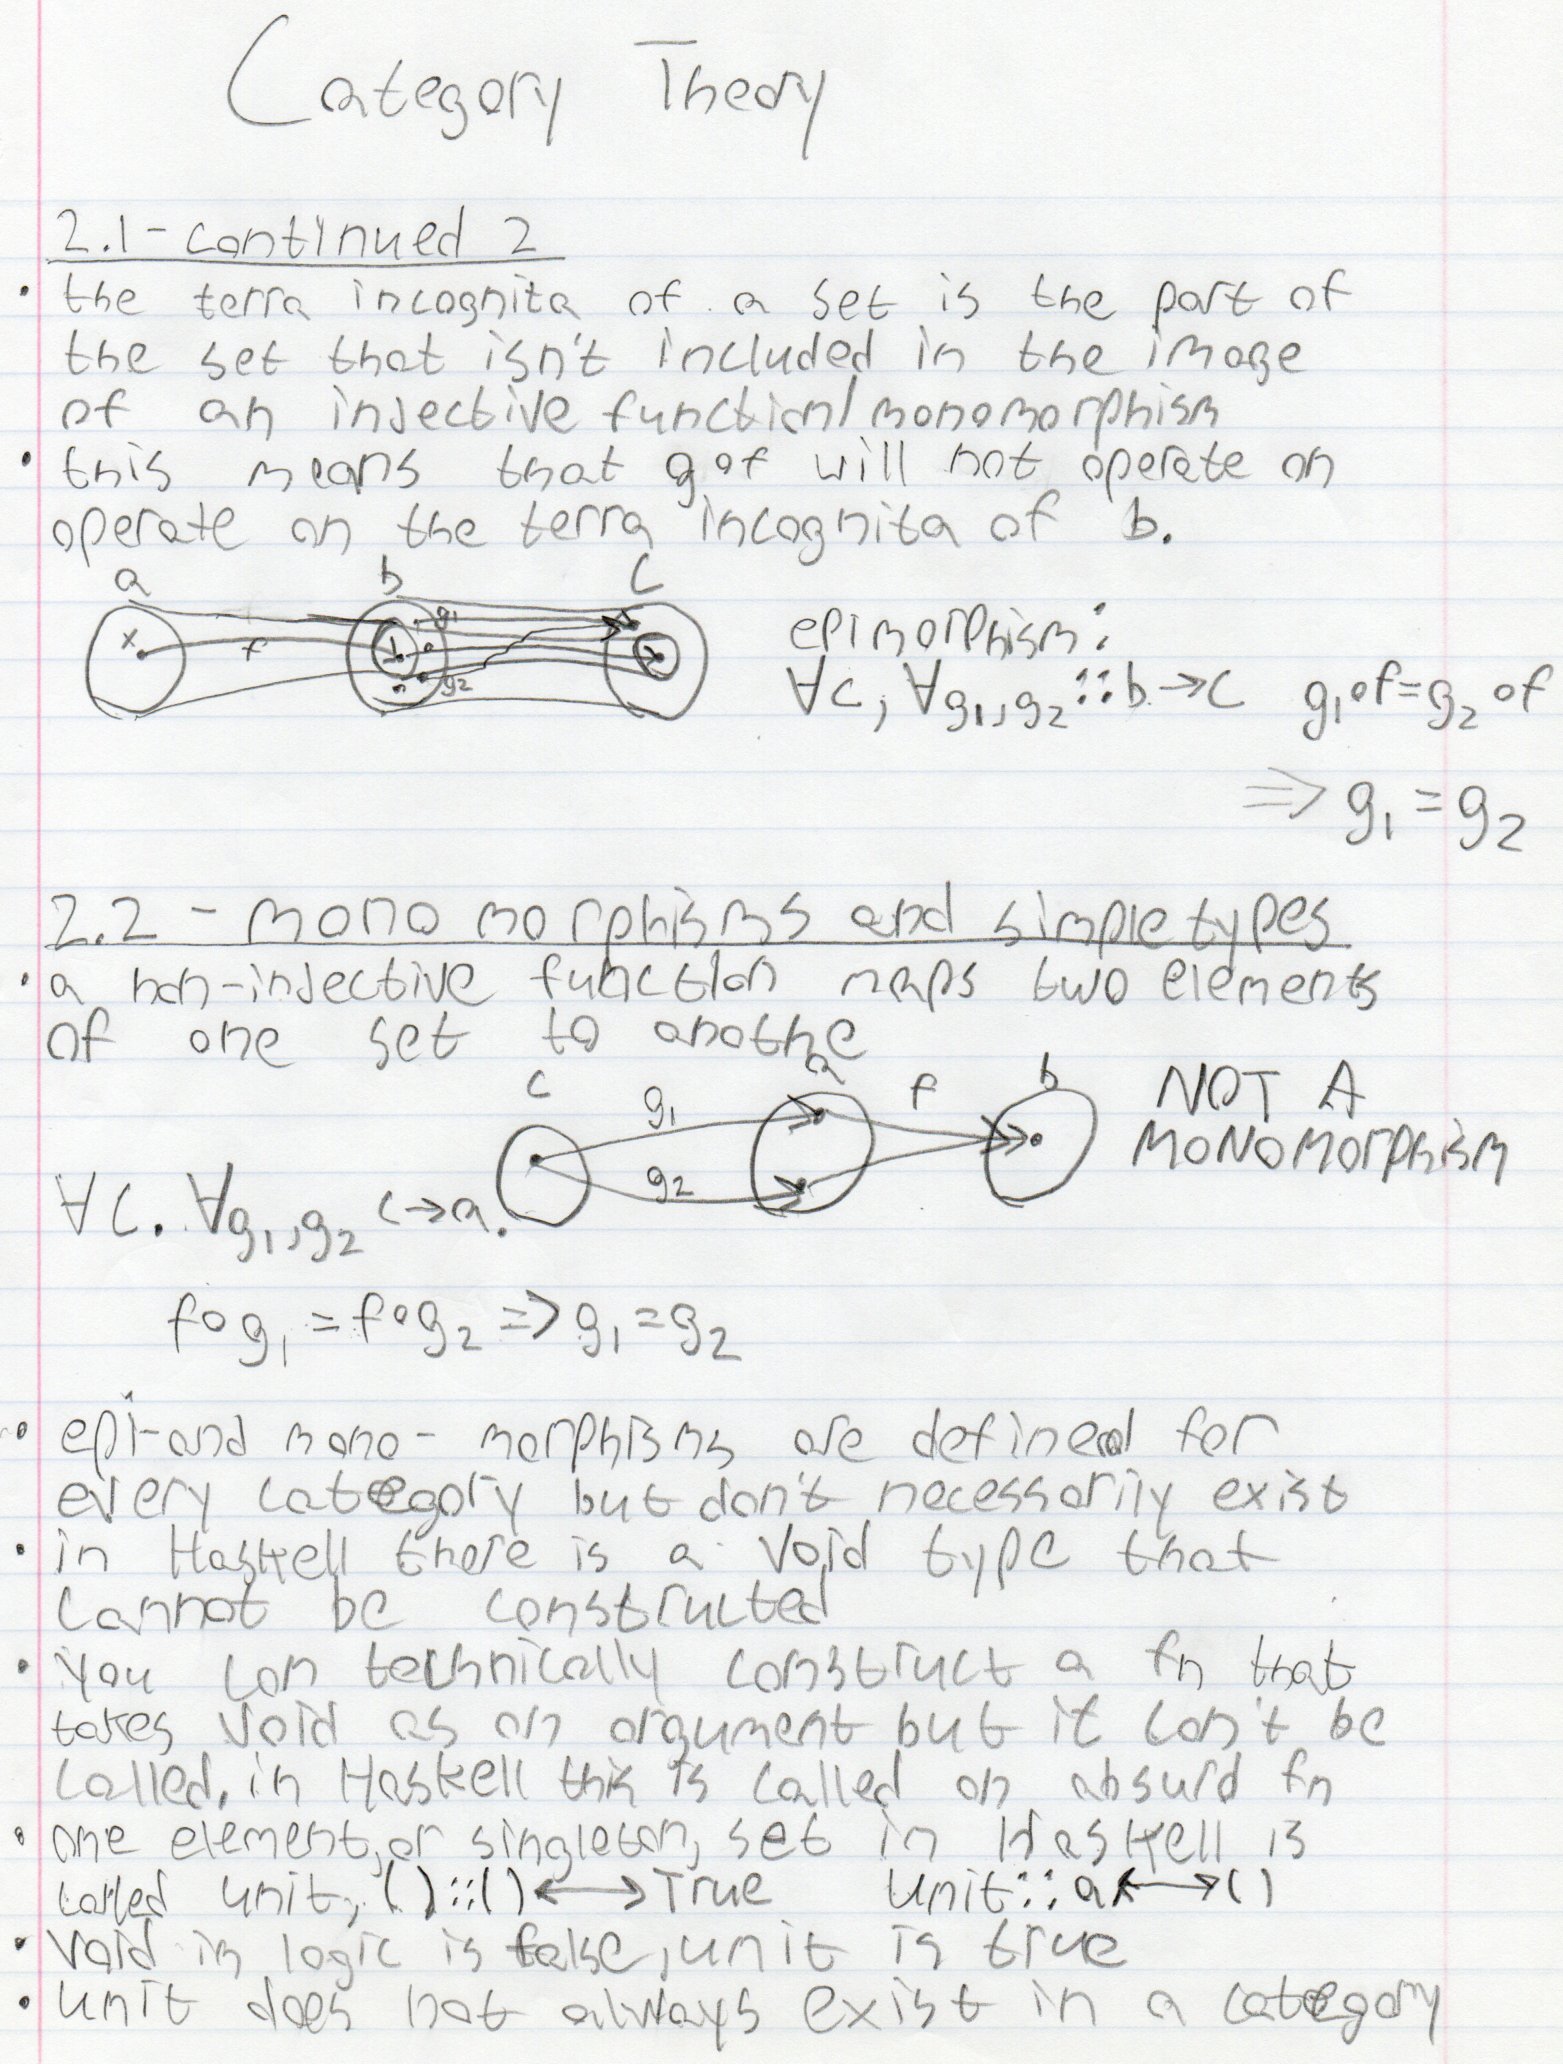 Category Theory
2.1 - continued 2
• the terra incognita of a set is the part of
the set that isn't included in the image
of an injective function/monomorphism
• this means that g∘f will not operate on
operate on the terra incognita of b.
a b c
x f g1 g2
epimorphism:
∀c, ∀g₁,g₂ :: b→c g₁∘f=g₂∘f
=> g₁ = g₂
2.2 - monomorphisms and simple types
• a non-injective function maps two elements
of one set to anothe
c g₁ a f b
g₂
NOT A
MONOMORPHISM
∀c. ∀g₁,g₂ c→a.
f∘g₁ = f∘g₂ => g₁ = g₂
• epi- and mono- morphisms are defined for
every category but don't necessarily exist
• in Haskell there is a Void type that
cannot be constructed
• you can technically construct a fn that
takes Void as an argument but it can't be
called, in Haskell this is called an absurd fn
• one element, or singleton, set in Haskell is
called unit, ()::() ⟷ True unit::a ⟷ ()
• Void in logic is false, unit is true
• unit does not always exist in a category